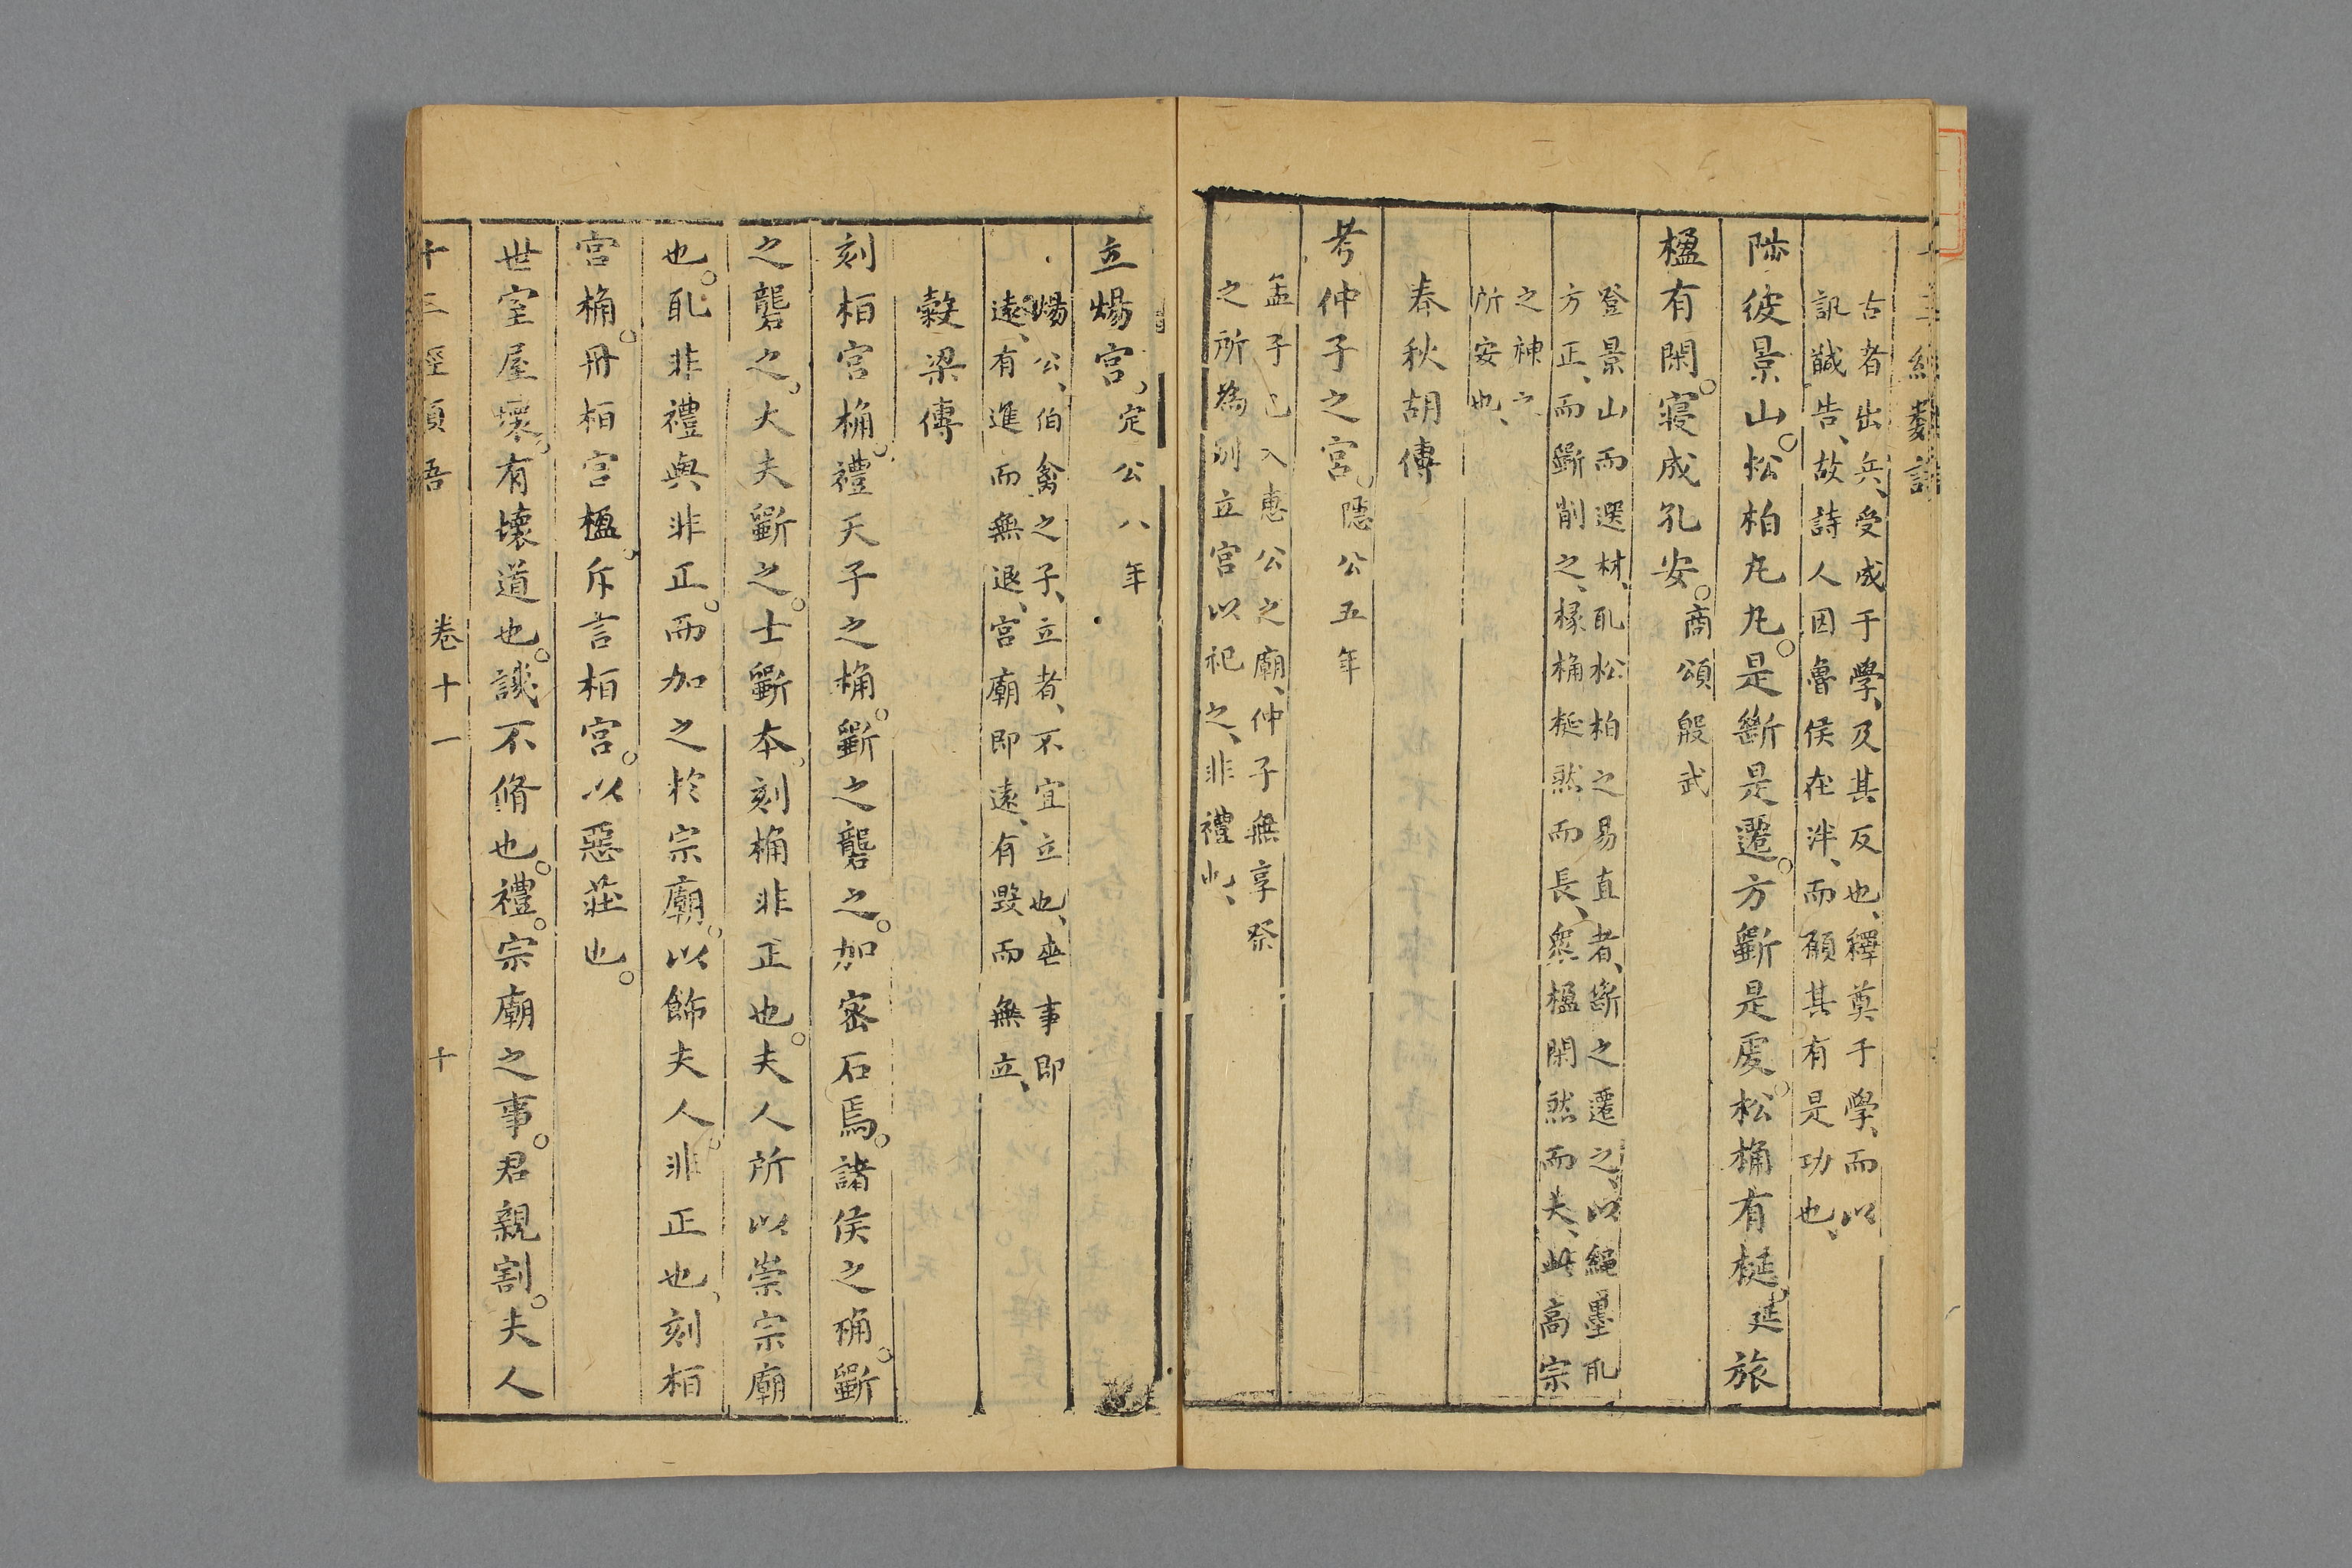 古者出兵、受成于學、及其反也、釋奠于學、而以
訊馘告、故詩人因魯侯在泮、而願其有是功也、
陟彼景山。松柏丸丸。是斷是遷。方斲是虔。松桷有梴。延旅
楹有閑。寢成孔安。商頌殷武
登景山而選材、取松柏之易直者、斷之遷之、以繩墨取
方正、而斲削之、椽桷梴然而長、衆楹閑然而大、此高宗
之神之
所安也、
春秋胡傳
考仲子之宮。隱公五年
孟子已入惠公之廟、仲子無享祭
之所為別立宮以祀之、非禮也、
立煬宮。定公八年
煬公、伯禽之子、立者、不宜立也、喪事即
遠、有進而無退、宮廟即遠、有毀而無立、
穀梁傳
刻栢宮桷。禮天子之桷。斲之礱之。加密石焉。諸侯之桷。斲
之礱之。大夫斲之。士斲本。刻桷非正也。夫人所以崇宗廟
也。取非禮與非正。而加之於宗廟。以飾夫人。非正也。刻栢
宮桷。丹栢宮楹。斥言栢宮。以惡莊也。
世室屋壞。有壞道也。譏不脩也。禮。宗廟之事。君親割。夫人
十三經類語 卷十一 十